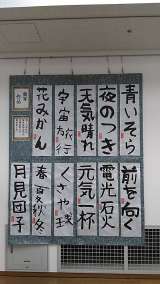 青いそら
夜のつき
天気晴れ
宇宙旅行
花みかん
前を向く
電光石火
元気一杯
春夏秋冬
月見団子